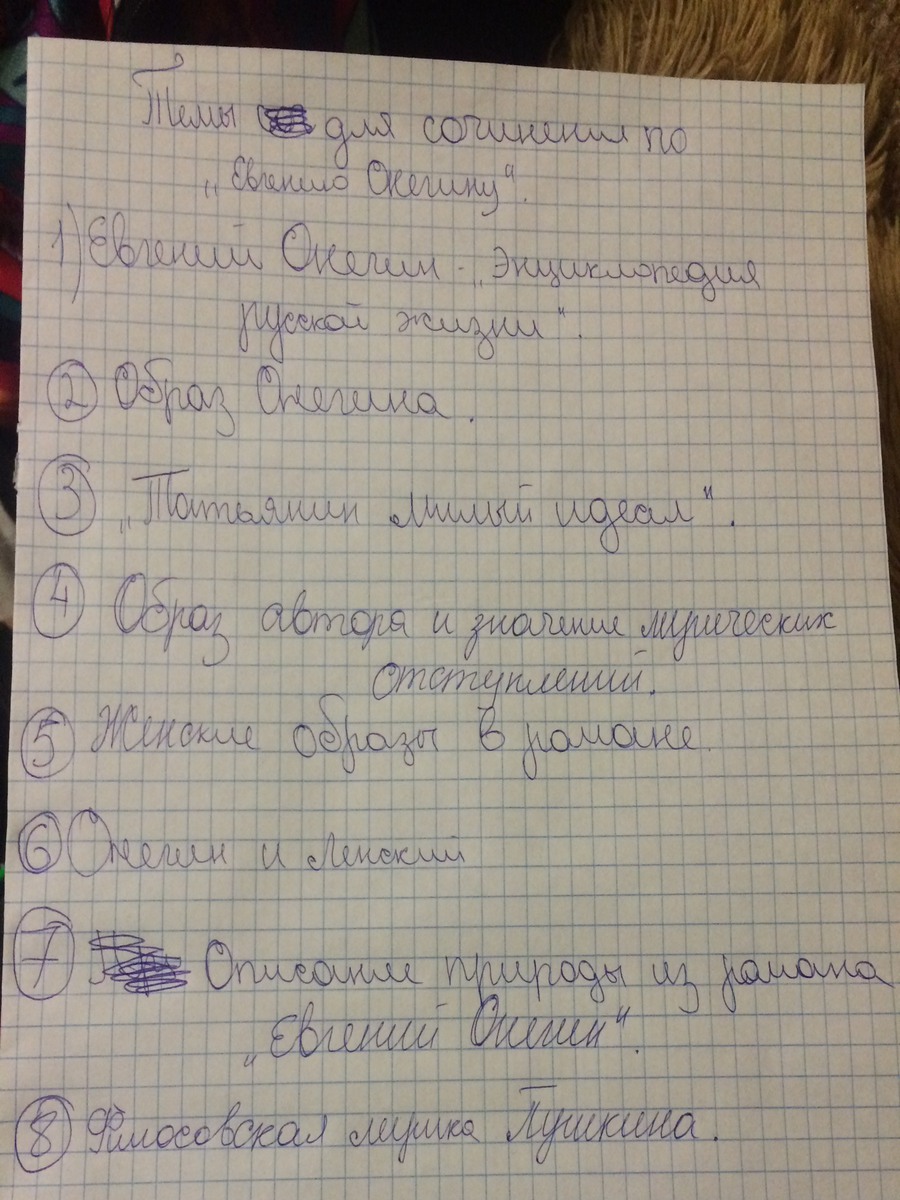 Темы для сочинения по
„Евгению Онегину“.
1) Евгений Онегин - „Энциклопедия
русской жизни“.
2 Образ Онегина.
3 „Татьянин милый идеал“.
4 Образ автора и значение лирических
отступлений.
5 Женские образы в романе.
6 Онегин и Ленский
7 Описание природы из романа
„Евгений Онегин“.
8 лирика Пушкина.